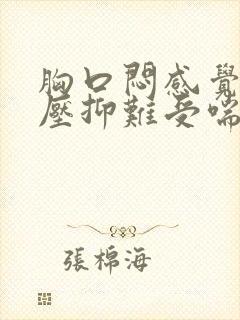 胸口悶感覺
壓抑難受喘
張棉海